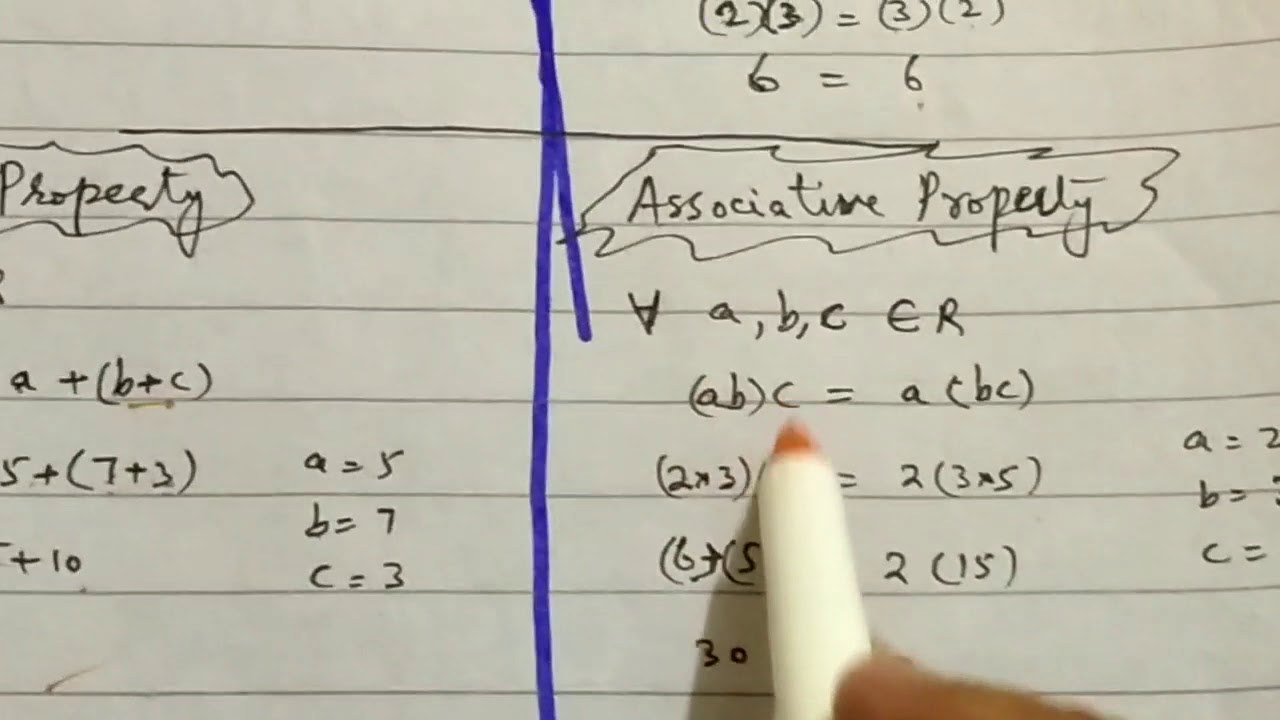 (2)(3) = (3)(2)
6 = 6
Property
a + (b+c)
5+(7+3)
+10
a = 5
b = 7
c = 3
Associative Property
∀ a, b, c ∈ R
(ab)c = a(bc)
(2×3) = 2(3×5)
(6)(5 2(15)
30
a = 2
b =
c =